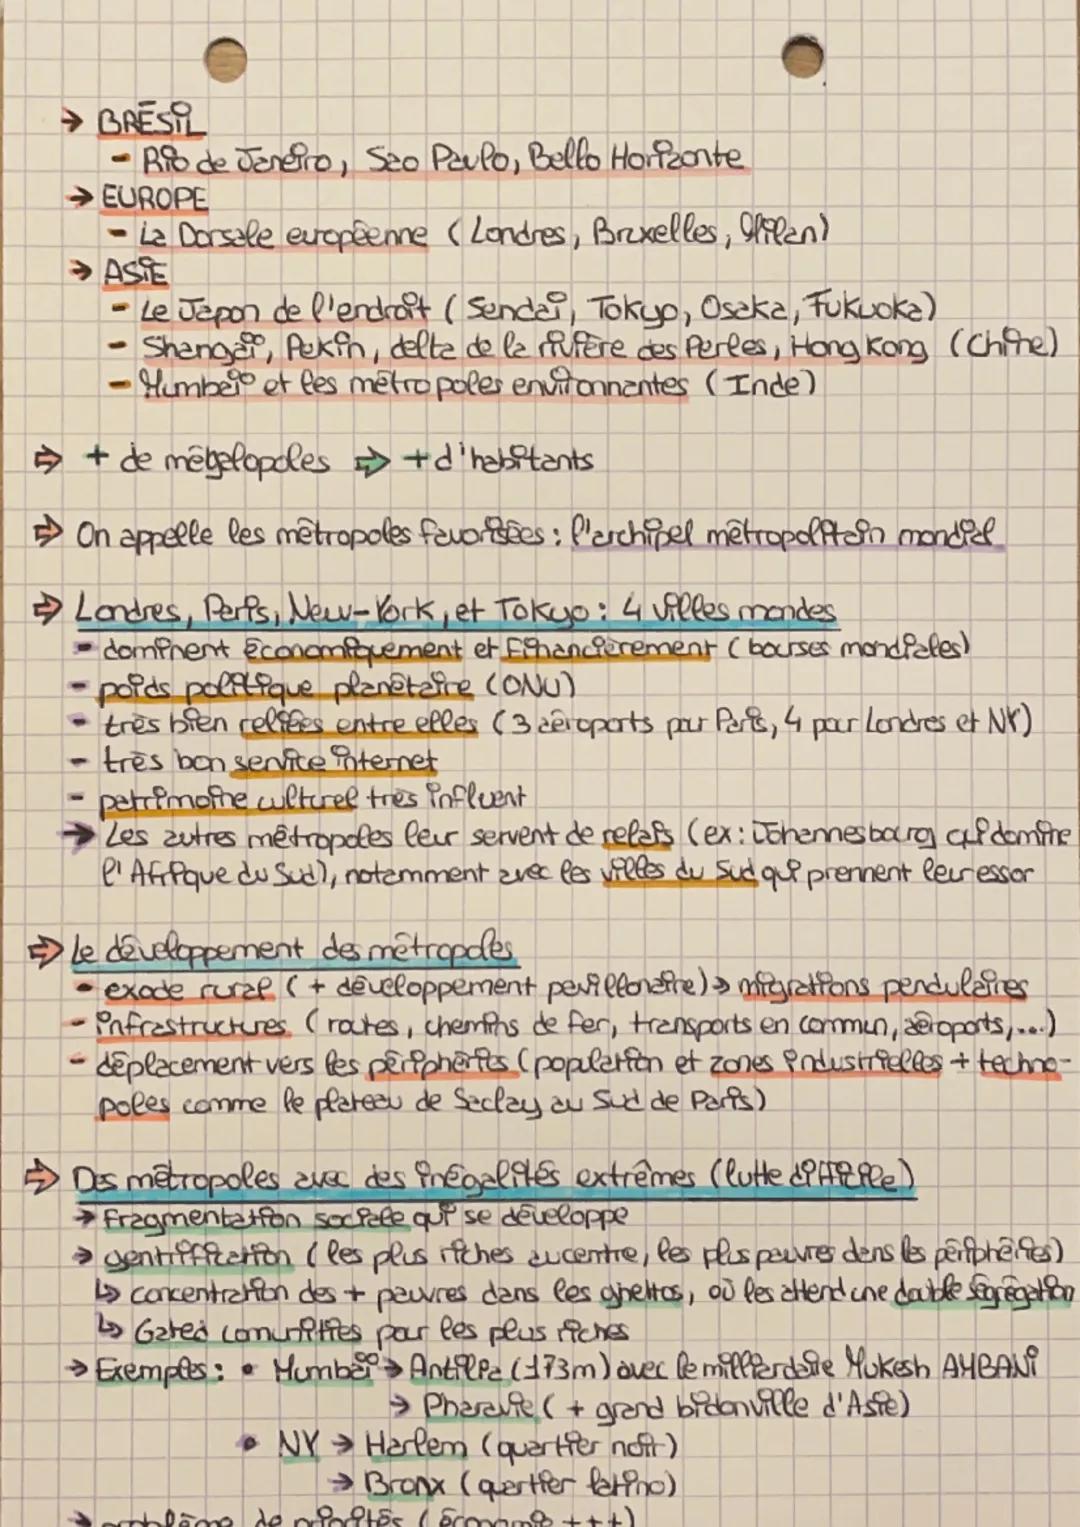 → BRÉSIL
- Rio de Janeiro, Sao Paulo, Bello Horizonte
→ EUROPE
- La Dorsale européenne (Londres, Bruxelles, Milan)
→ ASIE
- Le Japon de l'endroit (Sendai, Tokyo, Osaka, Fukuoka)
- Shangaï, Pekin, delta de la rivière des Perles, Hong Kong (Chine)
- Mumbaï et les métropoles environnantes (Inde)
⇒ + de mégalopoles ⇒ + d'habitants
⇒ On appelle les métropoles favorisées : l'archipel métropolitain mondial
⇒ Londres, Paris, New-York, et Tokyo : 4 villes mondes
- dominent économiquement et financièrement (bourses mondiales)
- poids politique planétaire (ONU)
- très bien reliées entre elles (3 aéroports pour Paris, 4 pour Londres et NY)
- très bon service internet
- patrimoine culturel très influent
→ Les autres métropoles leur servent de relais (ex : Johannesbourg qui domine
l'Afrique du Sud), notamment avec les villes du Sud qui prennent leur essor
⇒ Le développement des métropoles
- exode rural (+ développement pavillonaire) → migrations pendulaires
- infrastructures (routes, chemins de fer, transports en commun, aéroports,...)
- déplacement vers les périphéries (population et zones industrielles + techno-
poles comme le plateau de Saclay au Sud de Paris)
⇒ Des métropoles avec des inégalités extrêmes (lutte difficile)
→ Fragmentation sociale qui se développe
→ gentrification (les plus riches au centre, les plus pauvres dans les périphéries)
↳ concentration des + pauvres dans les ghettos, où les attend une double ségrégation
↳ Gated comunities pour les plus riches
→ Exemples : • Mumbaï → Antilia (173m) avec le milliardaire Mukesh AMBANI
→ Pharavie (+ grand bidonville d'Asie)
• NY → Harlem (quartier noir)
→ Bronx (quartier latino)
→ problème de priorités (économie +++)